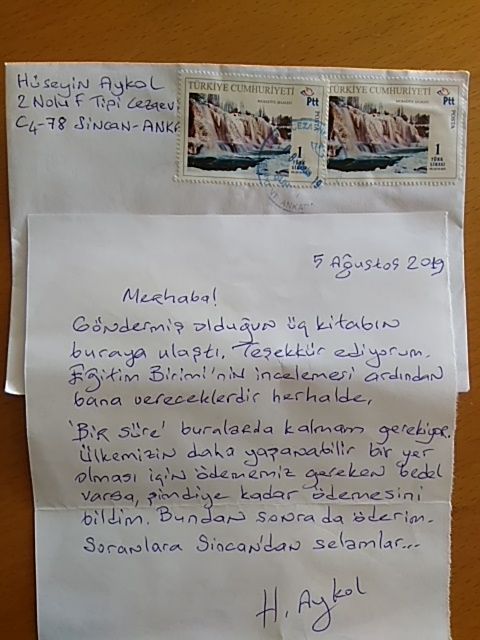 Hüseyin Aykol
2 Nolu F Tipi Cezaevi
C4-78 Sincan-ANKA
TÜRKİYE CUMHURİYETİ
Ptt
POSTA
1
TÜRK
LİRASI
TÜRKİYE CUMHURİYETİ
Ptt
POSTA
1
TÜRK
LİRASI
5 Ağustos 2019
Merhaba!
Göndermiş olduğun üç kitabın
buraya ulaştı. Teşekkür ediyorum.
Eğitim Birimi'nin incelemesi ardından
bana vereceklerdir herhalde.
'Bir süre' buralarda kalmam gerekiyor.
Ülkemizin daha yaşanabilir bir yer
olması için ödememiz gereken bedel
varsa, şimdiye kadar ödemesini
bildim. Bundan sonra da öderim.
Soranlara Sincan'dan selamlar...
H. Aykol